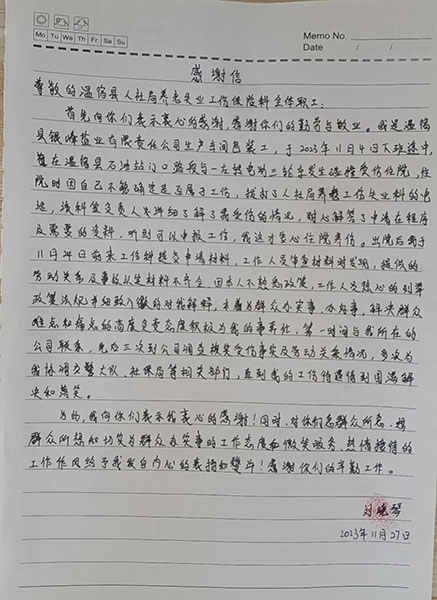 Mo Tu We Th Fr Sa Su
Memo No.
Date / /
感谢信
尊敬的温宿县人社局养老失业工伤保险科全体职工：
首先向你们表示衷心的感谢，感谢你们的勤劳与敬业。我是温宿
县银峰盐业有限责任公司生产车间包装工，于2023年11月4日下班途中，
在温宿县石油站门口路段与一左转电动三轮车发生碰撞受伤住院，住
院时因自己不能确定是否属于工伤，拨打了人社局养老工伤失业科的电
话，该科室负责人先详细了解了我受伤的情况，耐心解答了申请在程序
及需要的资料，听到可以申报工伤，我这才安心住院养伤。出院后我于
11月24日前来工伤科提交申请材料，工作人员审查材料时发现，提供的
劳动关系及事故从发材料不齐全，因本人不熟悉政策，工作人员热心的列举
政策法规并细致入微的对我解释，本着为群众办实事，办好事，解决群众
难点和痛点的高度负责态度积极为我的事奔忙，第一时间与我所在的
公司联系，先后三次到公司调查核实受伤事实及劳动关系情况，多次为
我协调交警大队、社保局等相关部门，直到我的工伤待遇得到圆满解
决和落实。
为此，我向你们表示我衷心的感谢！同时，对你们急群众所急、想
群众所想和切实为群众办实事的工作态度和微笑服务、热情接待的
工作作风给予我发自内心的表扬和赞许！感谢你们的辛勤工作。
2023年11月27日